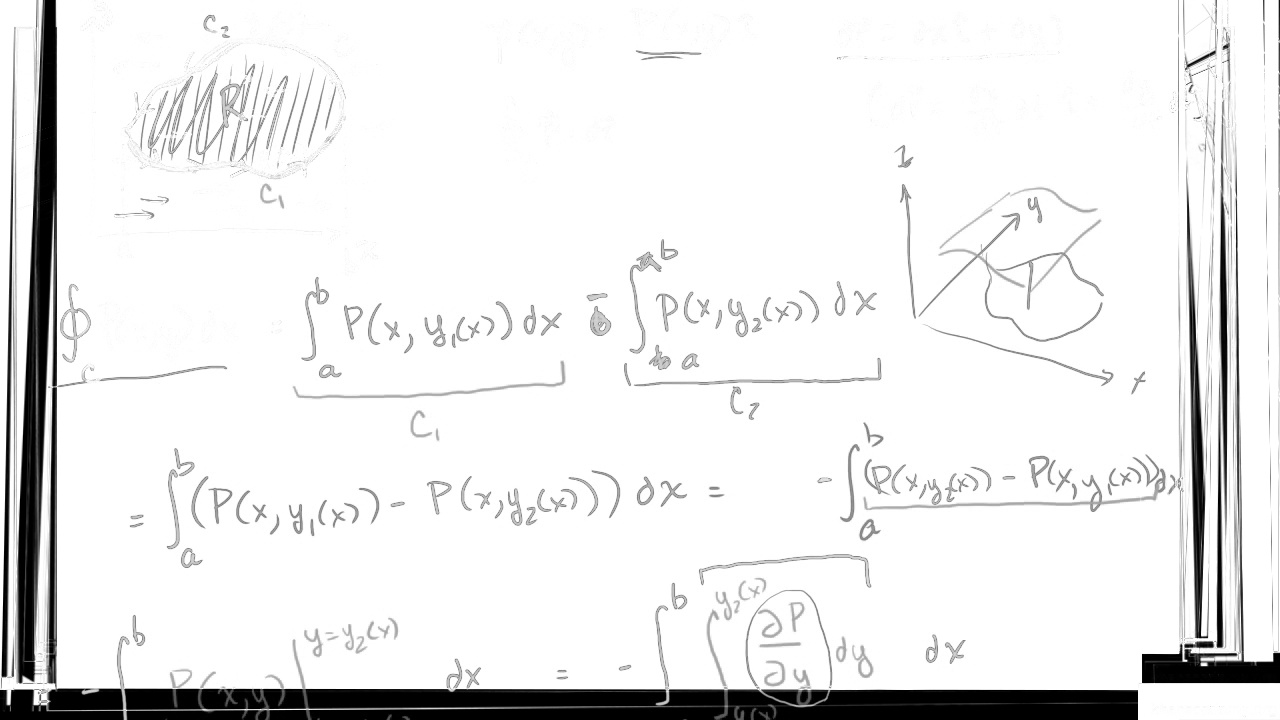 C₂
R
C₁
z
y
x
∮_C = ∫_a^b P(x, y₁(x)) dx - ∫_a^b P(x, y₂(x)) dx
C₁ C₂
= ∫_a^b (P(x, y₁(x)) - P(x, y₂(x))) dx = - ∫_a^b (P(x, y₂(x)) - P(x, y₁(x))) dx
- ∫^b P(x, y) |^{y=y₂(x)} dx = - ∫^b ∫^{y₂(x)} ∂P/∂y dy dx